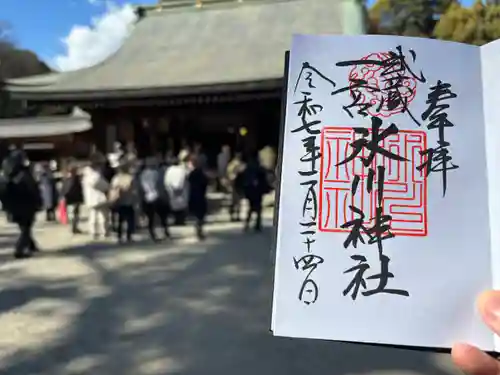 奉拝
武蔵
一宮
氷川神社
令和七年一月二十四日